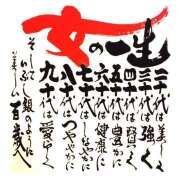 女の一生
二十代は美しく
三十代は強く
四十代は賢く
五十代は豊かに
六十代は健康に
七十代はしなやかに
八十代はつややかに
九十代は愛らしく
そしていぶし銀のように
美しい百歳へ